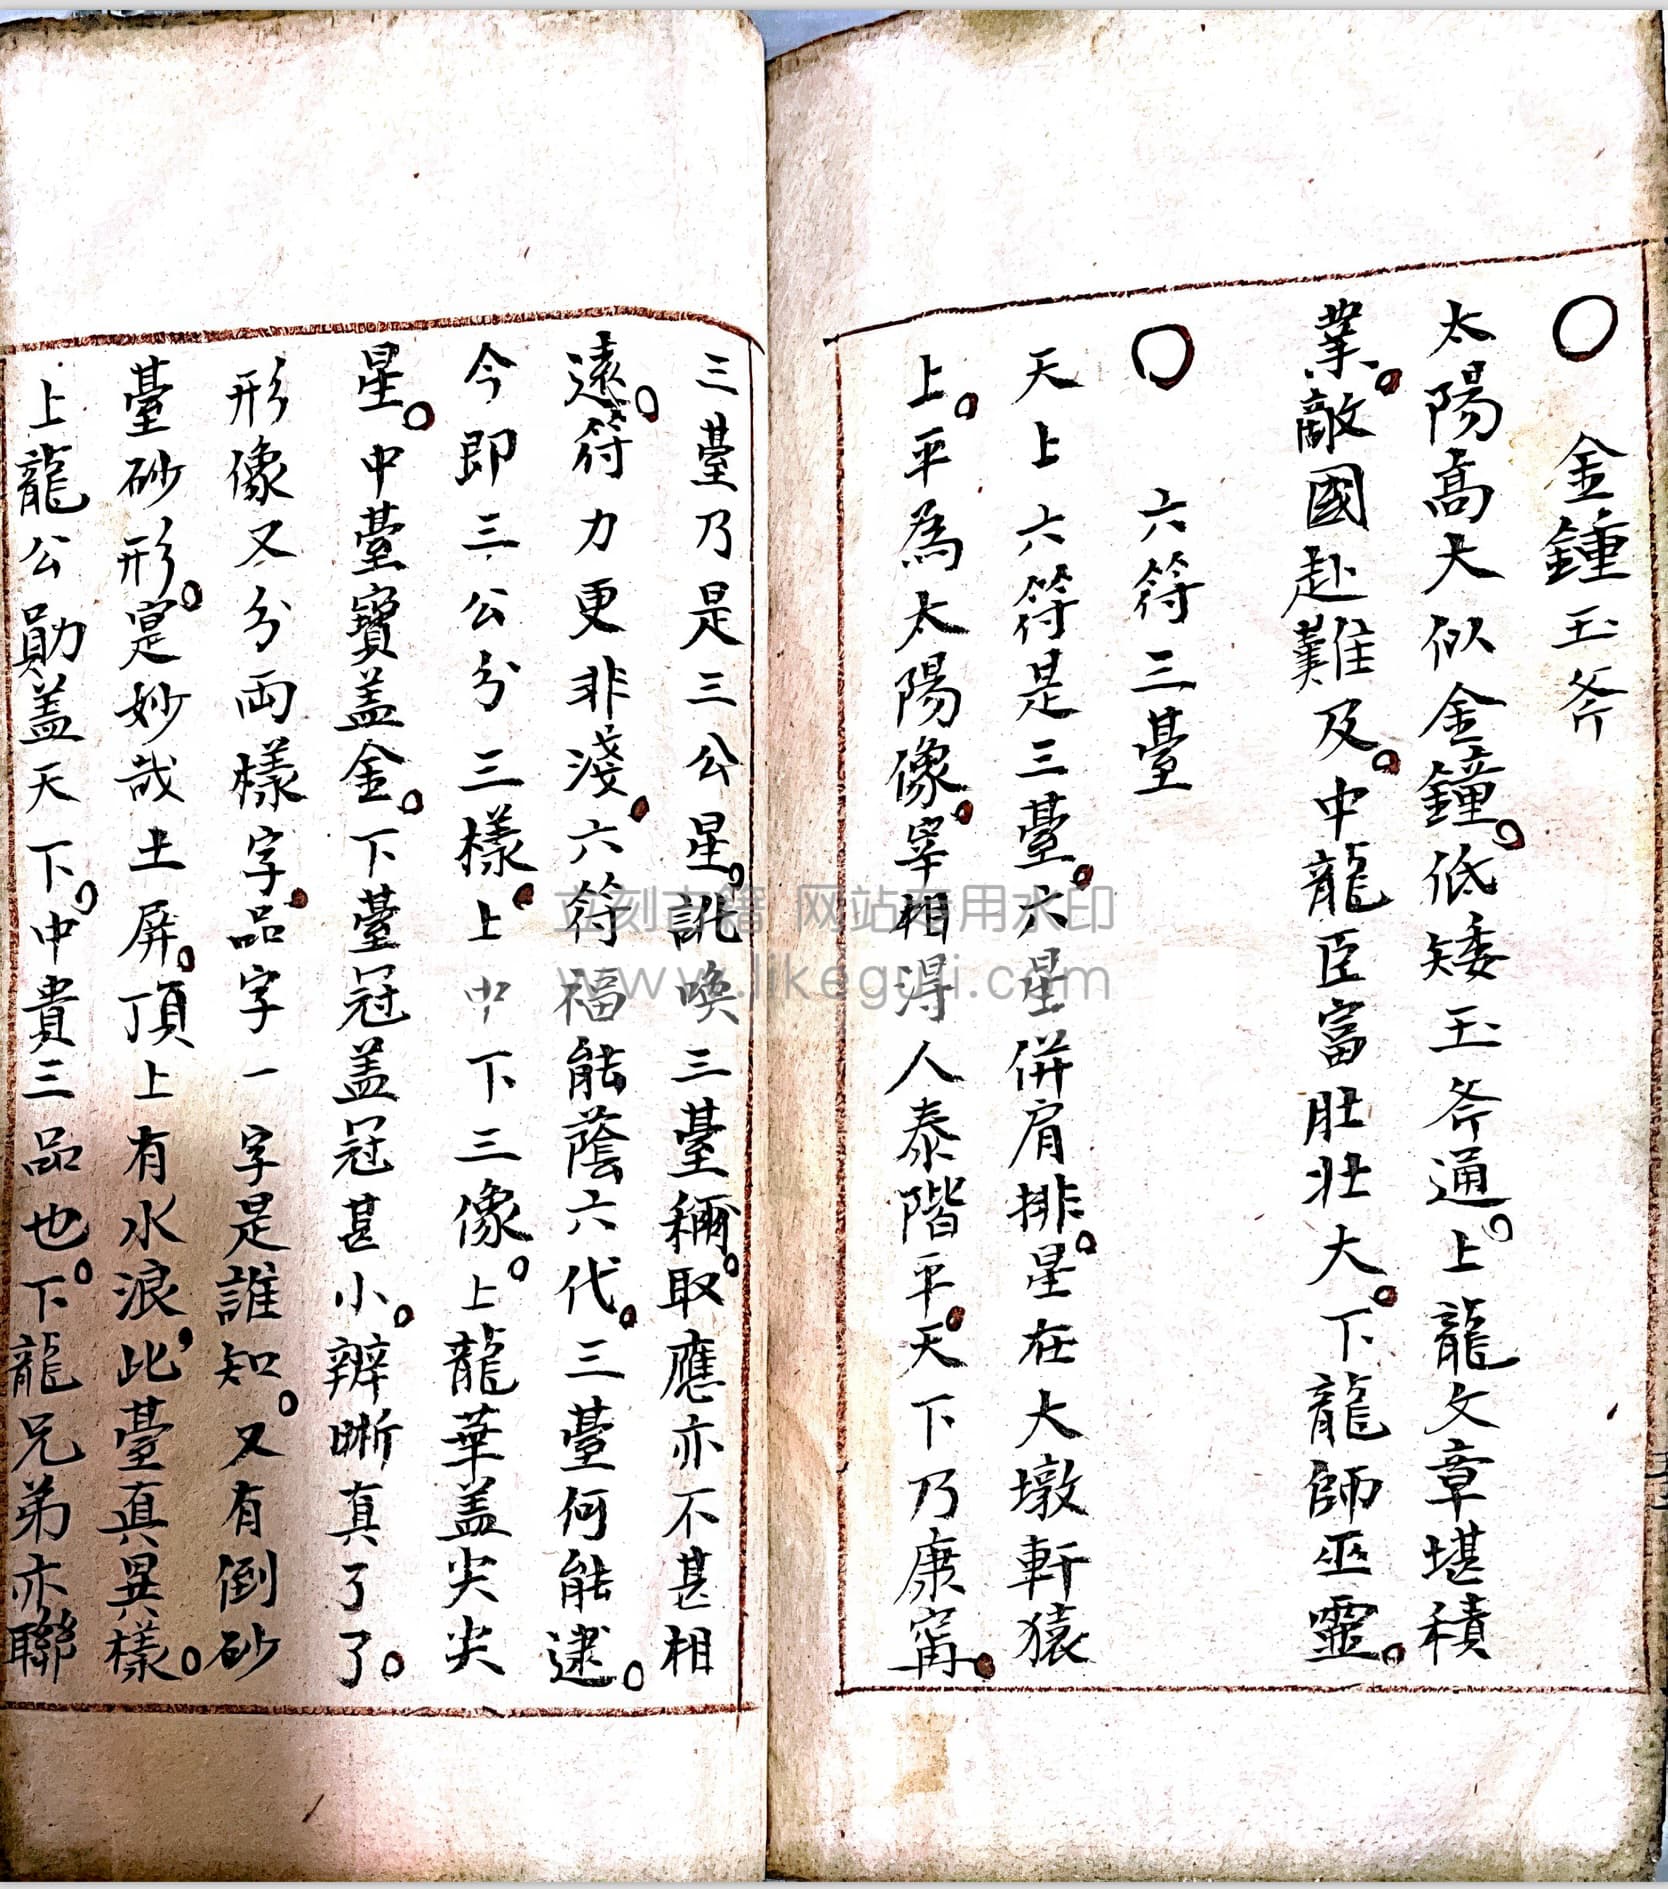 ○　金鍾玉斧
太陽高大似金鐘。低矮玉斧通。上龍文章堪積
業。敵國赴難及。中龍臣富肚壯大。下龍師巫靈。
○　六符三臺
天上六符是三臺。六星併肩排。星在大墩軒猿
上。平為太陽像。宰相得人泰階平。天下乃康甯。
三臺乃是三公星。訛喚三臺稱。取應亦不甚相
遠。符力更非淺。六符福能蔭六代。三臺何能逮。
今即三公分三樣。上中下三像。上龍華盖尖尖
星。中臺寶盖金。下臺冠盖冠甚小。辨晰真了了。
形像又分両樣字。品字一字是誰知。又有倒砂
臺砂形。寔妙哉土屏。頂上有水浪，此臺真異樣。
上龍公勛盖天下。中貴三品也。下龍兄弟亦聯
立刻古籍 网站专用水印
www.likeguji.com